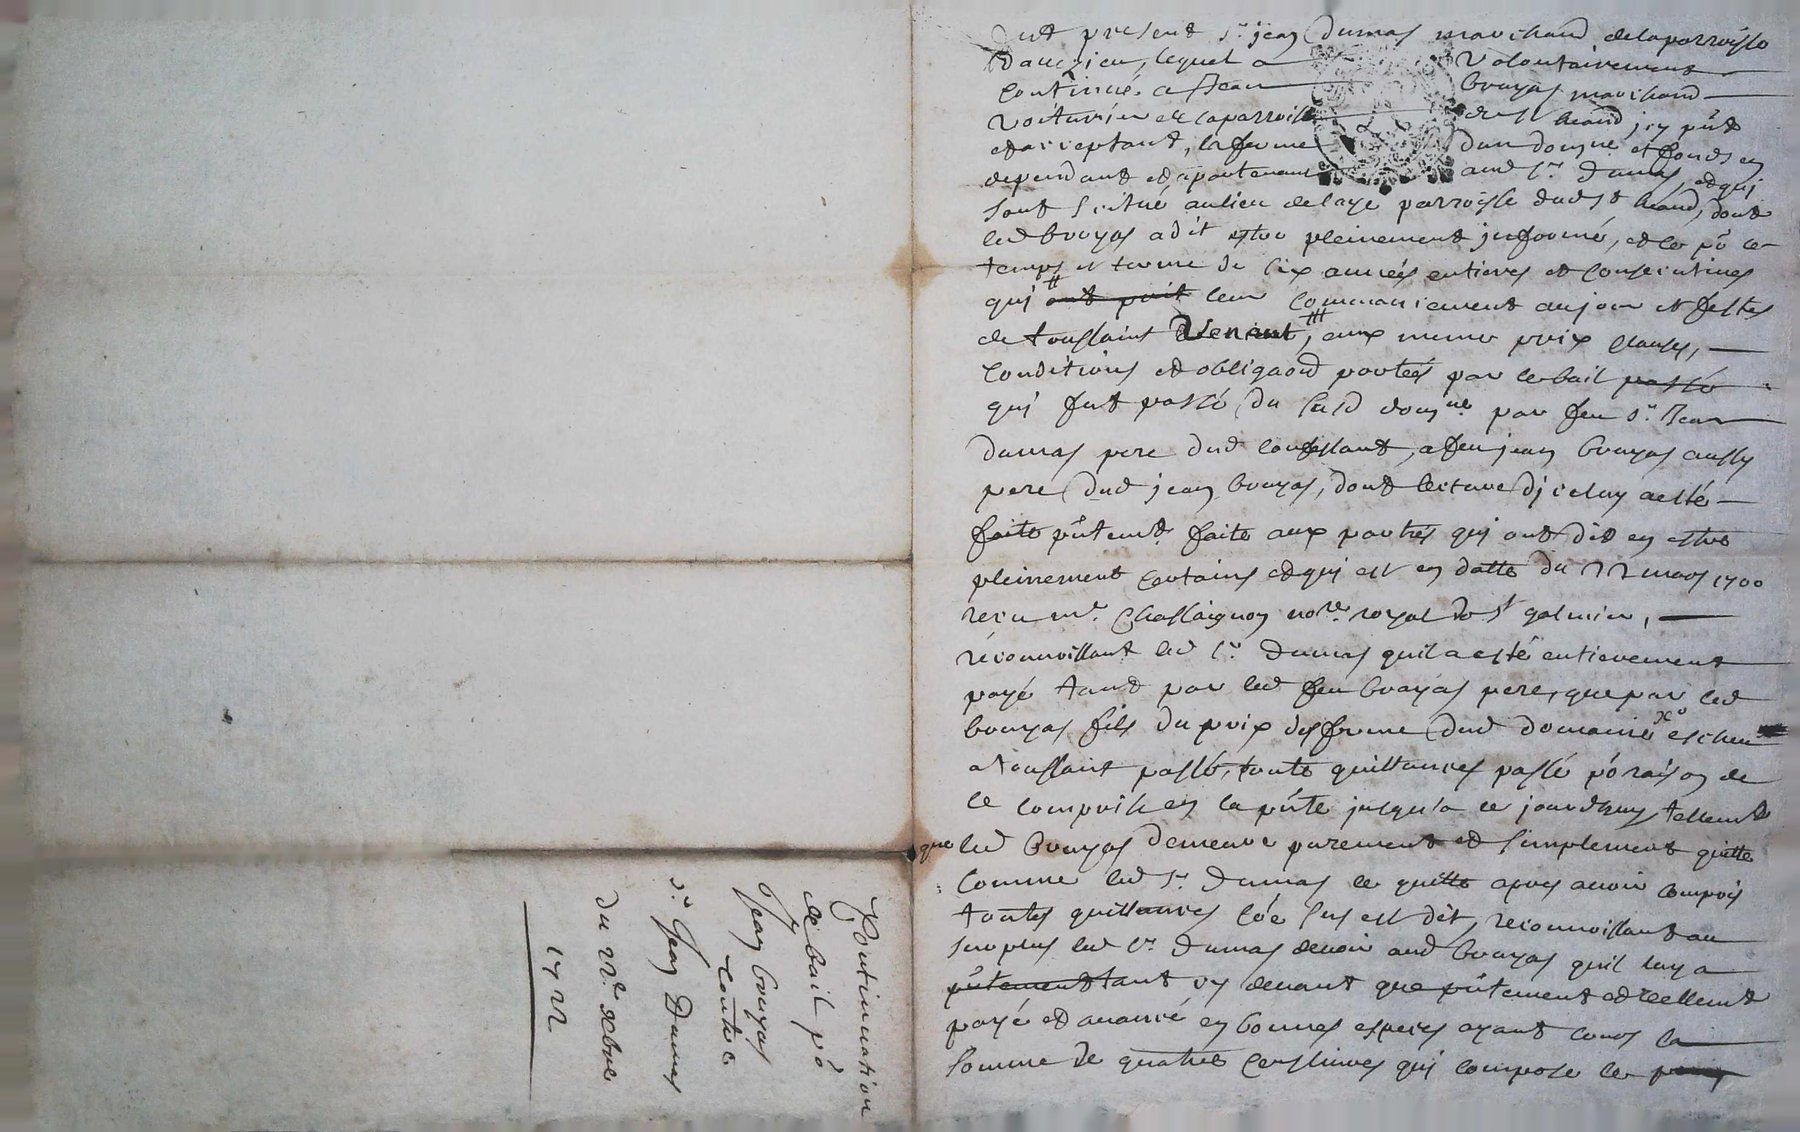 fut present sr jean Dumas marchand de la parroisse
Davezieu, lequel a volontairement
continué a Jean bouyas marchand
voiturier de la parroisse de st heand, icy pñt
et acceptant, la ferme dun domne et fonds en
dependant et apartenant aud sr Dumas, et qui
sont scitué au lieu de laye parroisse dud st heand, dont
led bouyas a dit estre pleinement informé, et ce pr le
temps et terme de six années entieres et consecutives
qui ont prit leur commancement au jour et festes
de toussaint venant, aux meme prix clauses,
conditions et obligaond portés par le bail passé
qui fut passé du susd domne par feu sr Jean
Dumas pere dud confessant, a feu jean bouyas aussy
pere dud jean bouyas, dont lecture diceluy a esté
faite pñtemt faite aux parties qui ont dit en estre
pleinement certains et qui est en datte du 22 mars 1700
receu me Chassaignon nore royal de st galmier,
reconnoissant led sr Dumas quil a esté entierement
payé tant par led feu bouyas pere, que par led
bouyas fils du prix de ferme dud domaine escheu
a toussaint passé, toute quittances passé pr raison de
ce compris en la pñte jusqu'a ce jourdhuy tellemt
que led bouyas demeure purement et simplement quitte
comme led sr Dumas le quitte apres avoir compris
toutes quittances coe sus est dit, reconnoissant au
surplus led sr Dumas devoir aud bouyas quil luy a
pñtement tant cy devant que pñtement et reellemt
payé et avancé en bonnes especes ayant cours la
somme de quatre cens livres qui compose le
Continuation
de bail pr
Jean bouyas
contre
sr Jean Dumas
du 22e xbre
1722